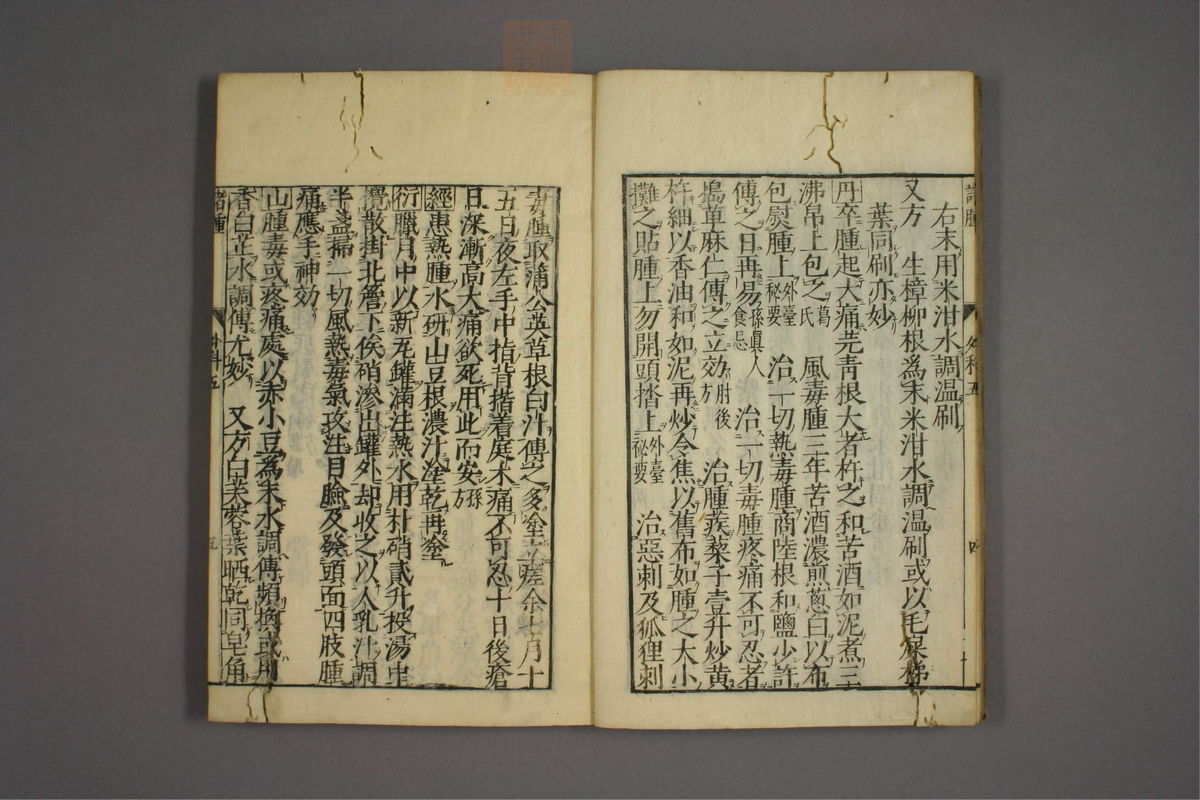 右末用米泔水調温刷
又方　生樟柳根爲末米泔水調温刷或以毛
葉同刷亦妙
丹卒腫起大痛羌青根大者杵之和苦酒如泥煮三
沸吊上包之葛氏　風毒腫三年苦酒濃煎蔥白以布
包熨腫上外臺秘要　治一切熱毒腫商陸根和鹽少許
傅之日再易孫眞人食忌　治一切毒腫疼痛不可忍者
搗萆麻仁傅之立効肘後方　治腫蒺藜子壹升炒黄
杵細以香油和如泥再炒令焦以舊布如腫之大小
攤之貼腫上勿開頭㳫上外臺秘要　治惡刺及狐狸刺
毒腫取蒲公英草根白汁傅之多塗立瘥余七月十
五日夜左手中指背揩着庭木痛不可忍十日後瘡
日深漸高大痛欲死用此而安孫方
經患熱腫水研山豆根濃汁塗乾再塗
衍臘月中以新瓦罐滿注熱水用朴硝貳升投湯中
攪散掛北簷下俟硝滲出罐外却收之以人乳汁調
半盞掃一切風熱毒氣攻注目臉及發頭面四肢腫
痛應手神効
山腫毒或疼痛處以赤小豆為末水調傅頻換或用
香白芷水調傅尤妙　又方白芙蓉葉晒乾同皂角
諸腫　外科五　四
諸腫　外科五　五